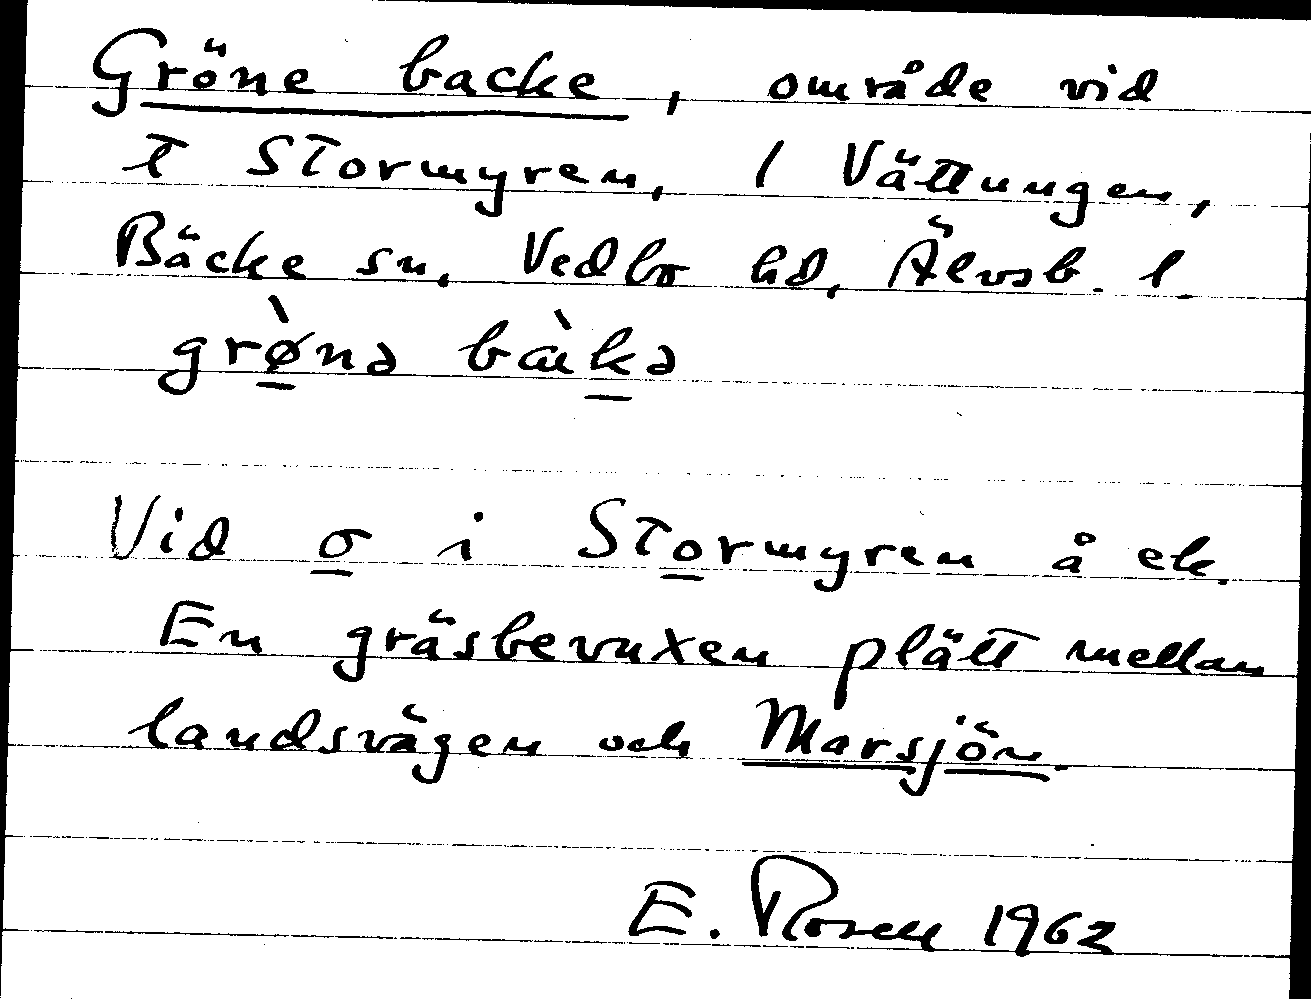 Gröne backe, område vid
t Stormyren, 1 Vättungen,
Bäcke sn, Vedbo hd, Älvsb. l.
grø̀nə bàkə
Vid o i Stormyren å ek.
En gräsbevuxen plätt mellan
landsvägen och Marsjön.
E. Rosell 1962